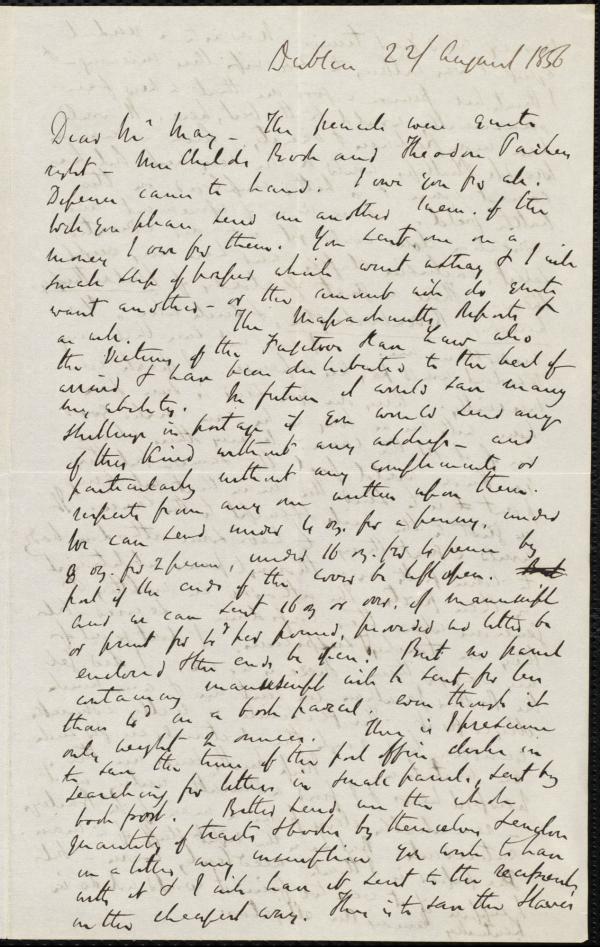 Dublin 22/ August 1856
Dear Mr May - The pencils were quite
right - Mrs Childs Book and Theodore Parkers
Defence came to hand. I owe you for all.
Will you please send me another of the
money I owe for them. You sent me on a
small slip of paper which went astray & I
want another - or the amount will do quite
as well. The Massachusetts Reports &
the Victims of the Fugitive Slave Law also
arrived & have been distributed to the best of
my ability. In future it would save many
shillings in postage if you would send any
of this kind without any address - and
particularly without any compliments or
respects from any one written upon them.
We can send under 4 oz. for a penny, under
8 oz. for 2 pence, under 16 oz. for 4 pence by
post if the ends of the cover be left open.
and we can send 16 oz or over, of manuscript
or print for 4d per pound, provided no letter be
enclosed & the ends be open. But no parcel
containing manuscript will be sent for less
than 4d as a book parcel, even though it
only weight 2 ounces. This is I presume
to save the time of the post office clerks in
searching for letters in small parcels, sent by
book post. Better send me the whole
quantity of tracts & books by themselves & enclose
in a letter any inscription you wish to have
with it & I will have it sent to the recipients
in the cheapest way. This is to save the Slaves